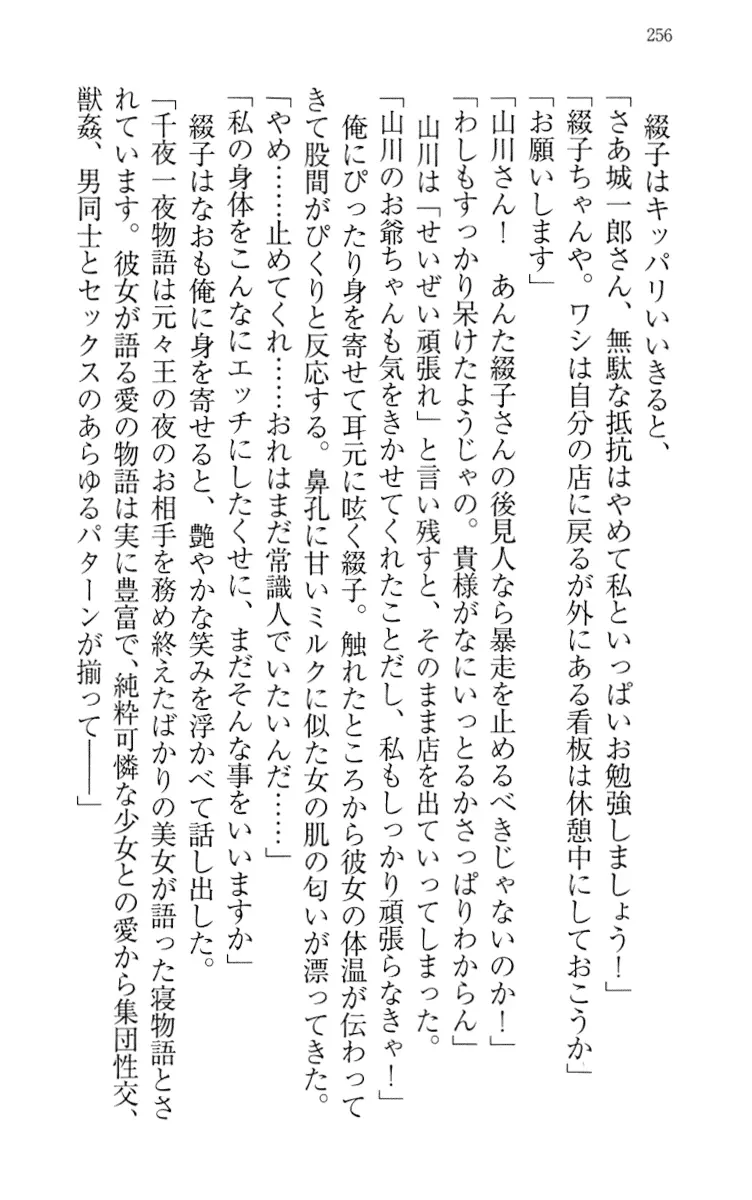 256
綴子はキッパリいいきると、
「さあ城一郎さん、無駄な抵抗はやめて私といっぱいお勉強しましょう！」
「綴子ちゃんや。ワシは自分の店に戻るが外にある看板は休憩中にしておこうか」
「お願いします」
「山川さん！　あんた綴子さんの後見人なら暴走を止めるべきじゃないのか！」
「わしもすっかり呆けたようじゃの。貴様がなにいっとるかさっぱりわからん」
山川は「せいぜい頑張れ」と言い残すと、そのまま店を出ていってしまった。
「山川のお爺ちゃんも気をきかせてくれたことだし、私もしっかり頑張らなきゃ！」
俺にぴったり身を寄せて耳元に呟く綴子。触れたところから彼女の体温が伝わって
きて股間がぴくりと反応する。鼻孔に甘いミルクに似た女の肌の匂いが漂ってきた。
「やめ……止めてくれ……おれはまだ常識人でいたいんだ……」
「私の身体をこんなにエッチにしたくせに、まだそんな事をいいますか」
綴子はなおも俺に身を寄せると、艶やかな笑みを浮かべて話し出した。
「千夜一夜物語は元々王の夜のお相手を務め終えたばかりの美女が語った寝物語とさ
れています。彼女が語る愛の物語は実に豊富で、純粋可憐な少女との愛から集団性交、
獣姦、男同士とセックスのあらゆるパターンが揃って――」